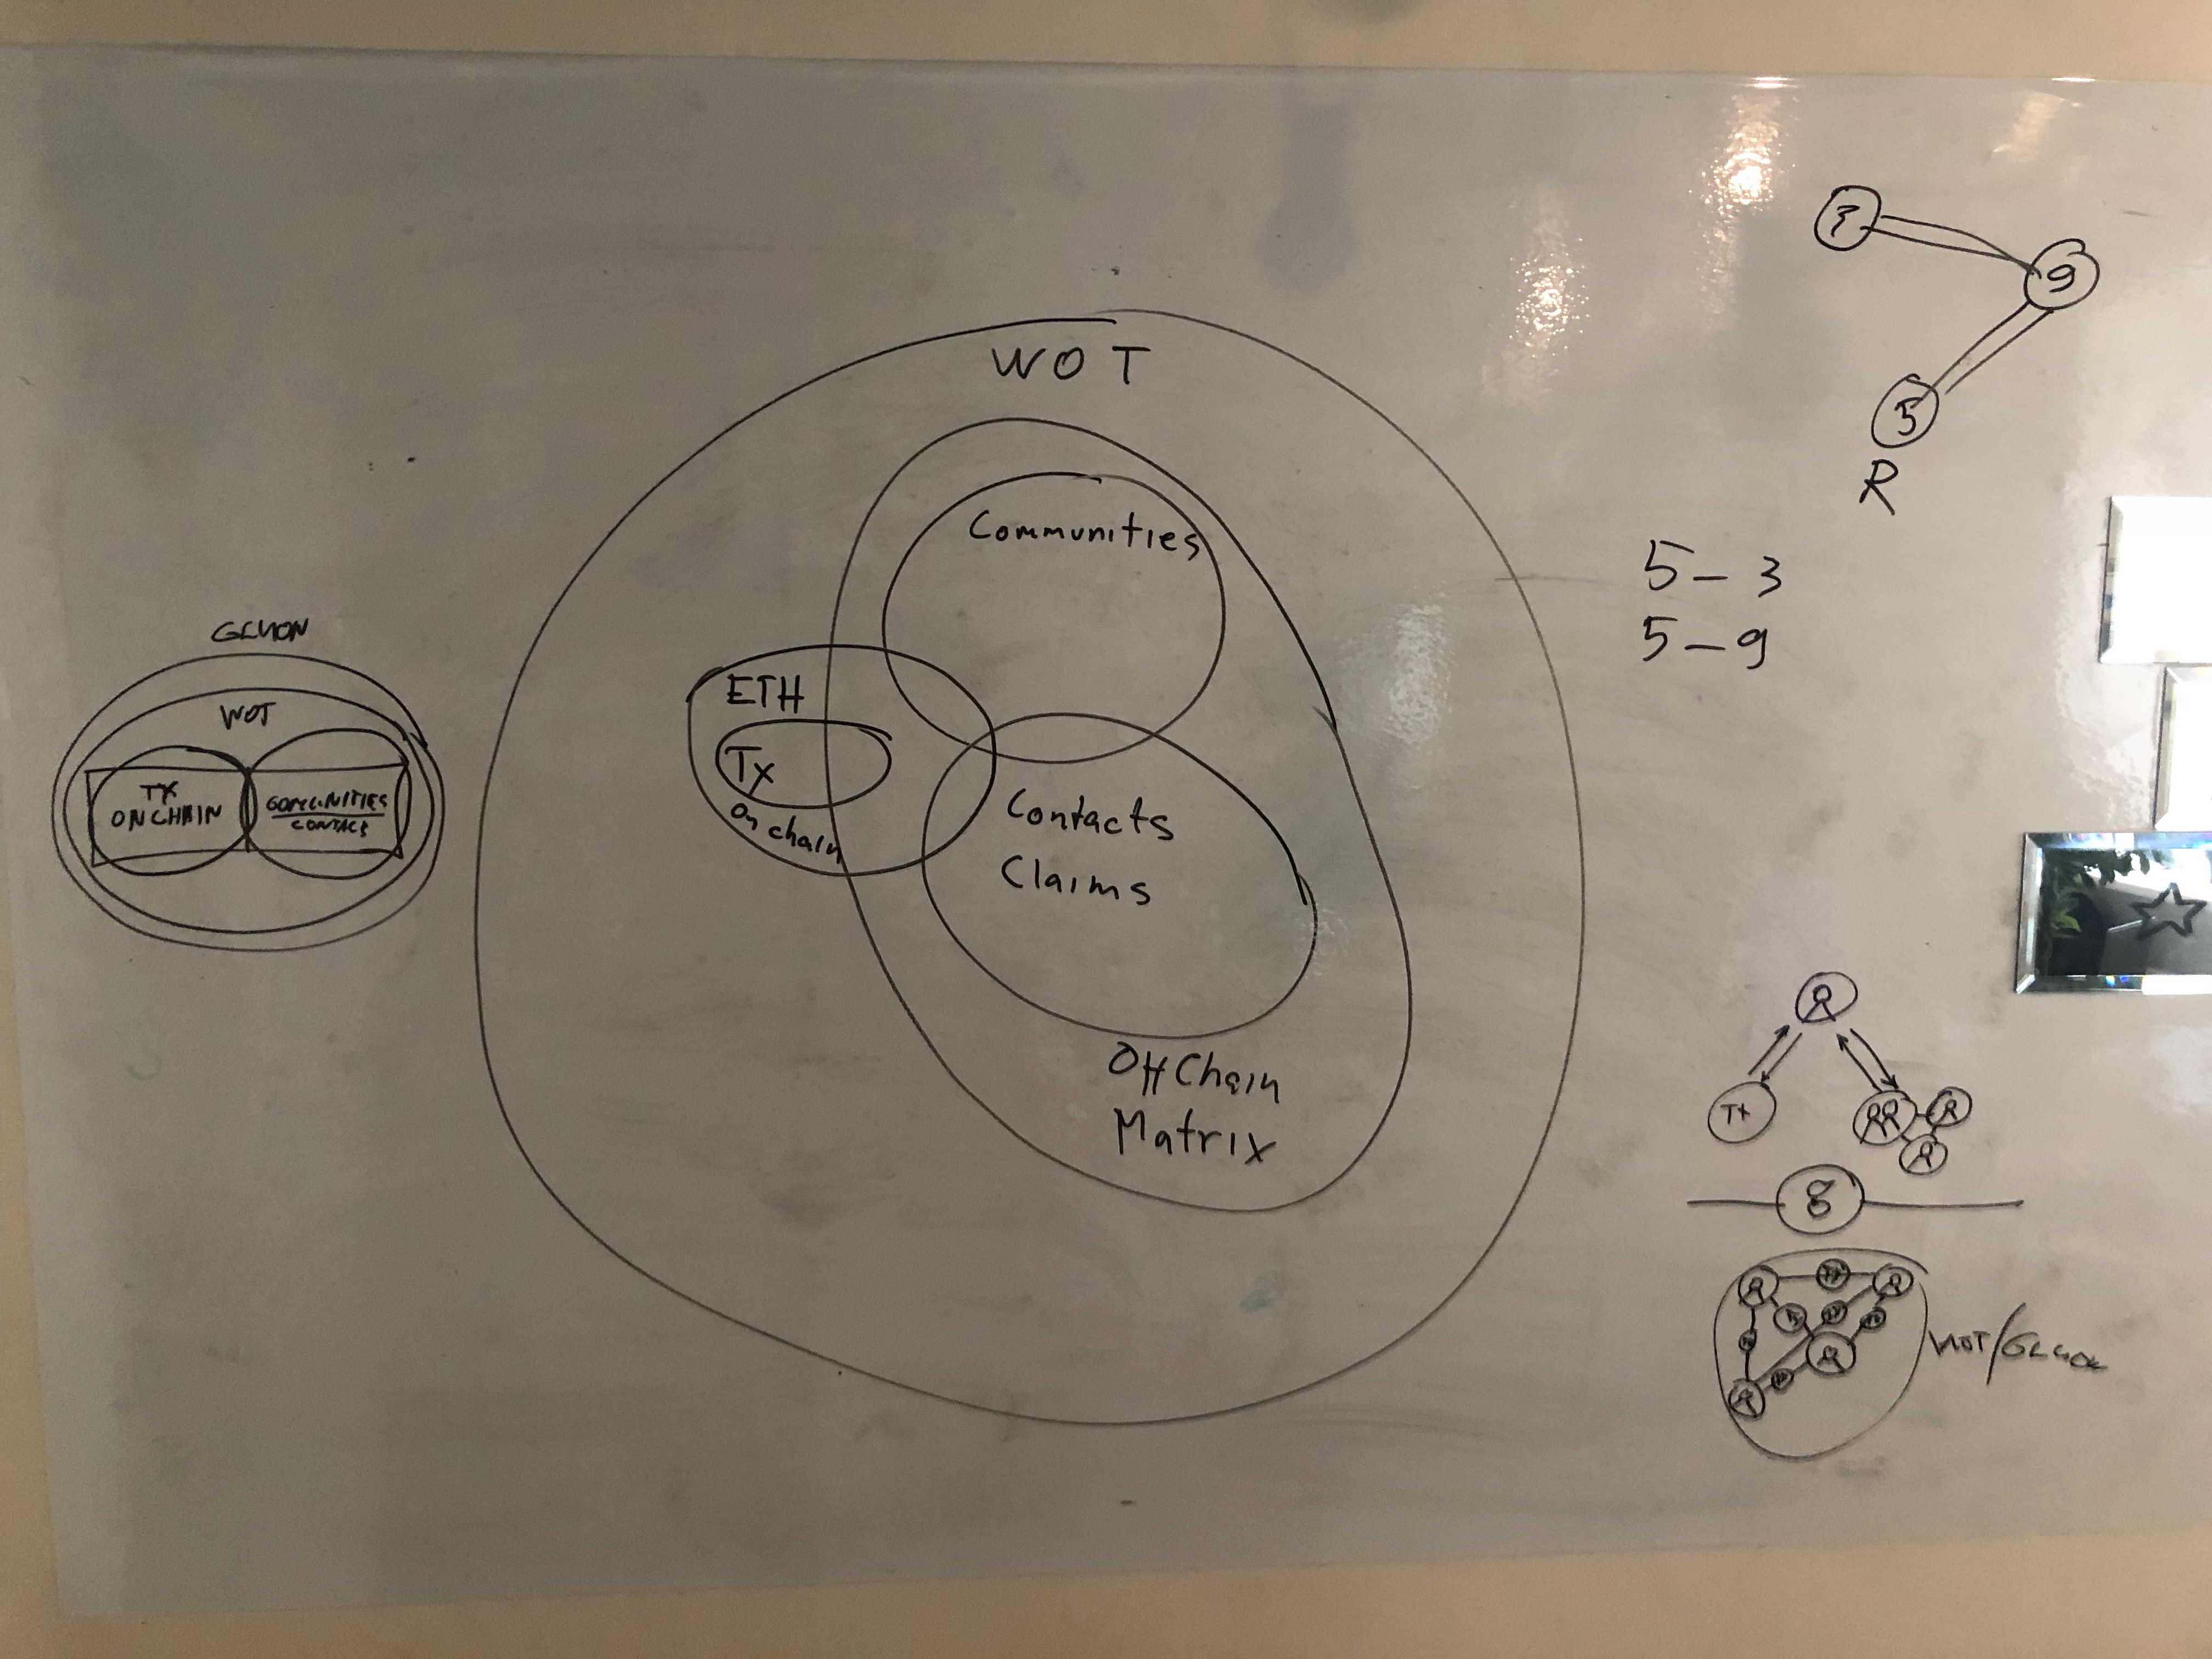 GLUON
WOT
TX
ONCHAIN
COMMUNITIES
CONTACS
WOT
Communities
ETH
Tx
On chain
Contacts
Claims
Off Chain
Matrix
9
5
R
5 - 3
5 - 9
TX
8
WOT/GLUON